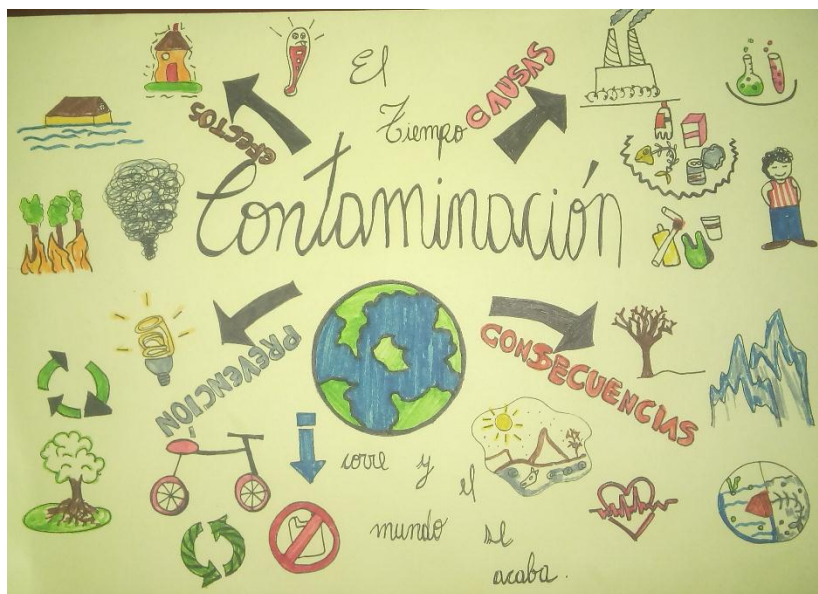 El
Tiempo
CAUSAS
EFECTOS
Contaminación
PREVENCIÓN
CONSECUENCIAS
corre y el
mundo se
acaba.